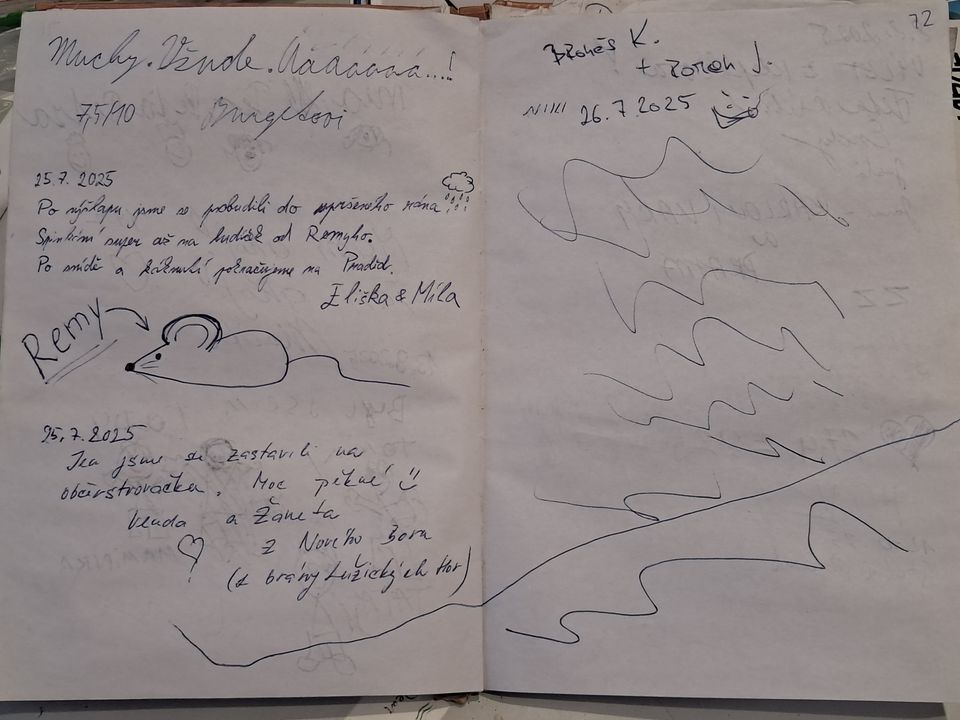 Muchy. Všude. Áááááááá...!
7,5/10
25.7.2025
Po výšlapu jsme se probudili do upršeného rána
Spinkání super až na hudiček od Remyho.
Po snídě a pokračujeme na Pradid.
Eliška & Míla
Remy
25.7.2025
Jen jsme se zastavili na
občerstvovačku. Moc pěkné
Venda a Žaneta
z Nového Boru
(z brány Lužických Hor)
72
K.
+ J.
NIKI 26.7.2025